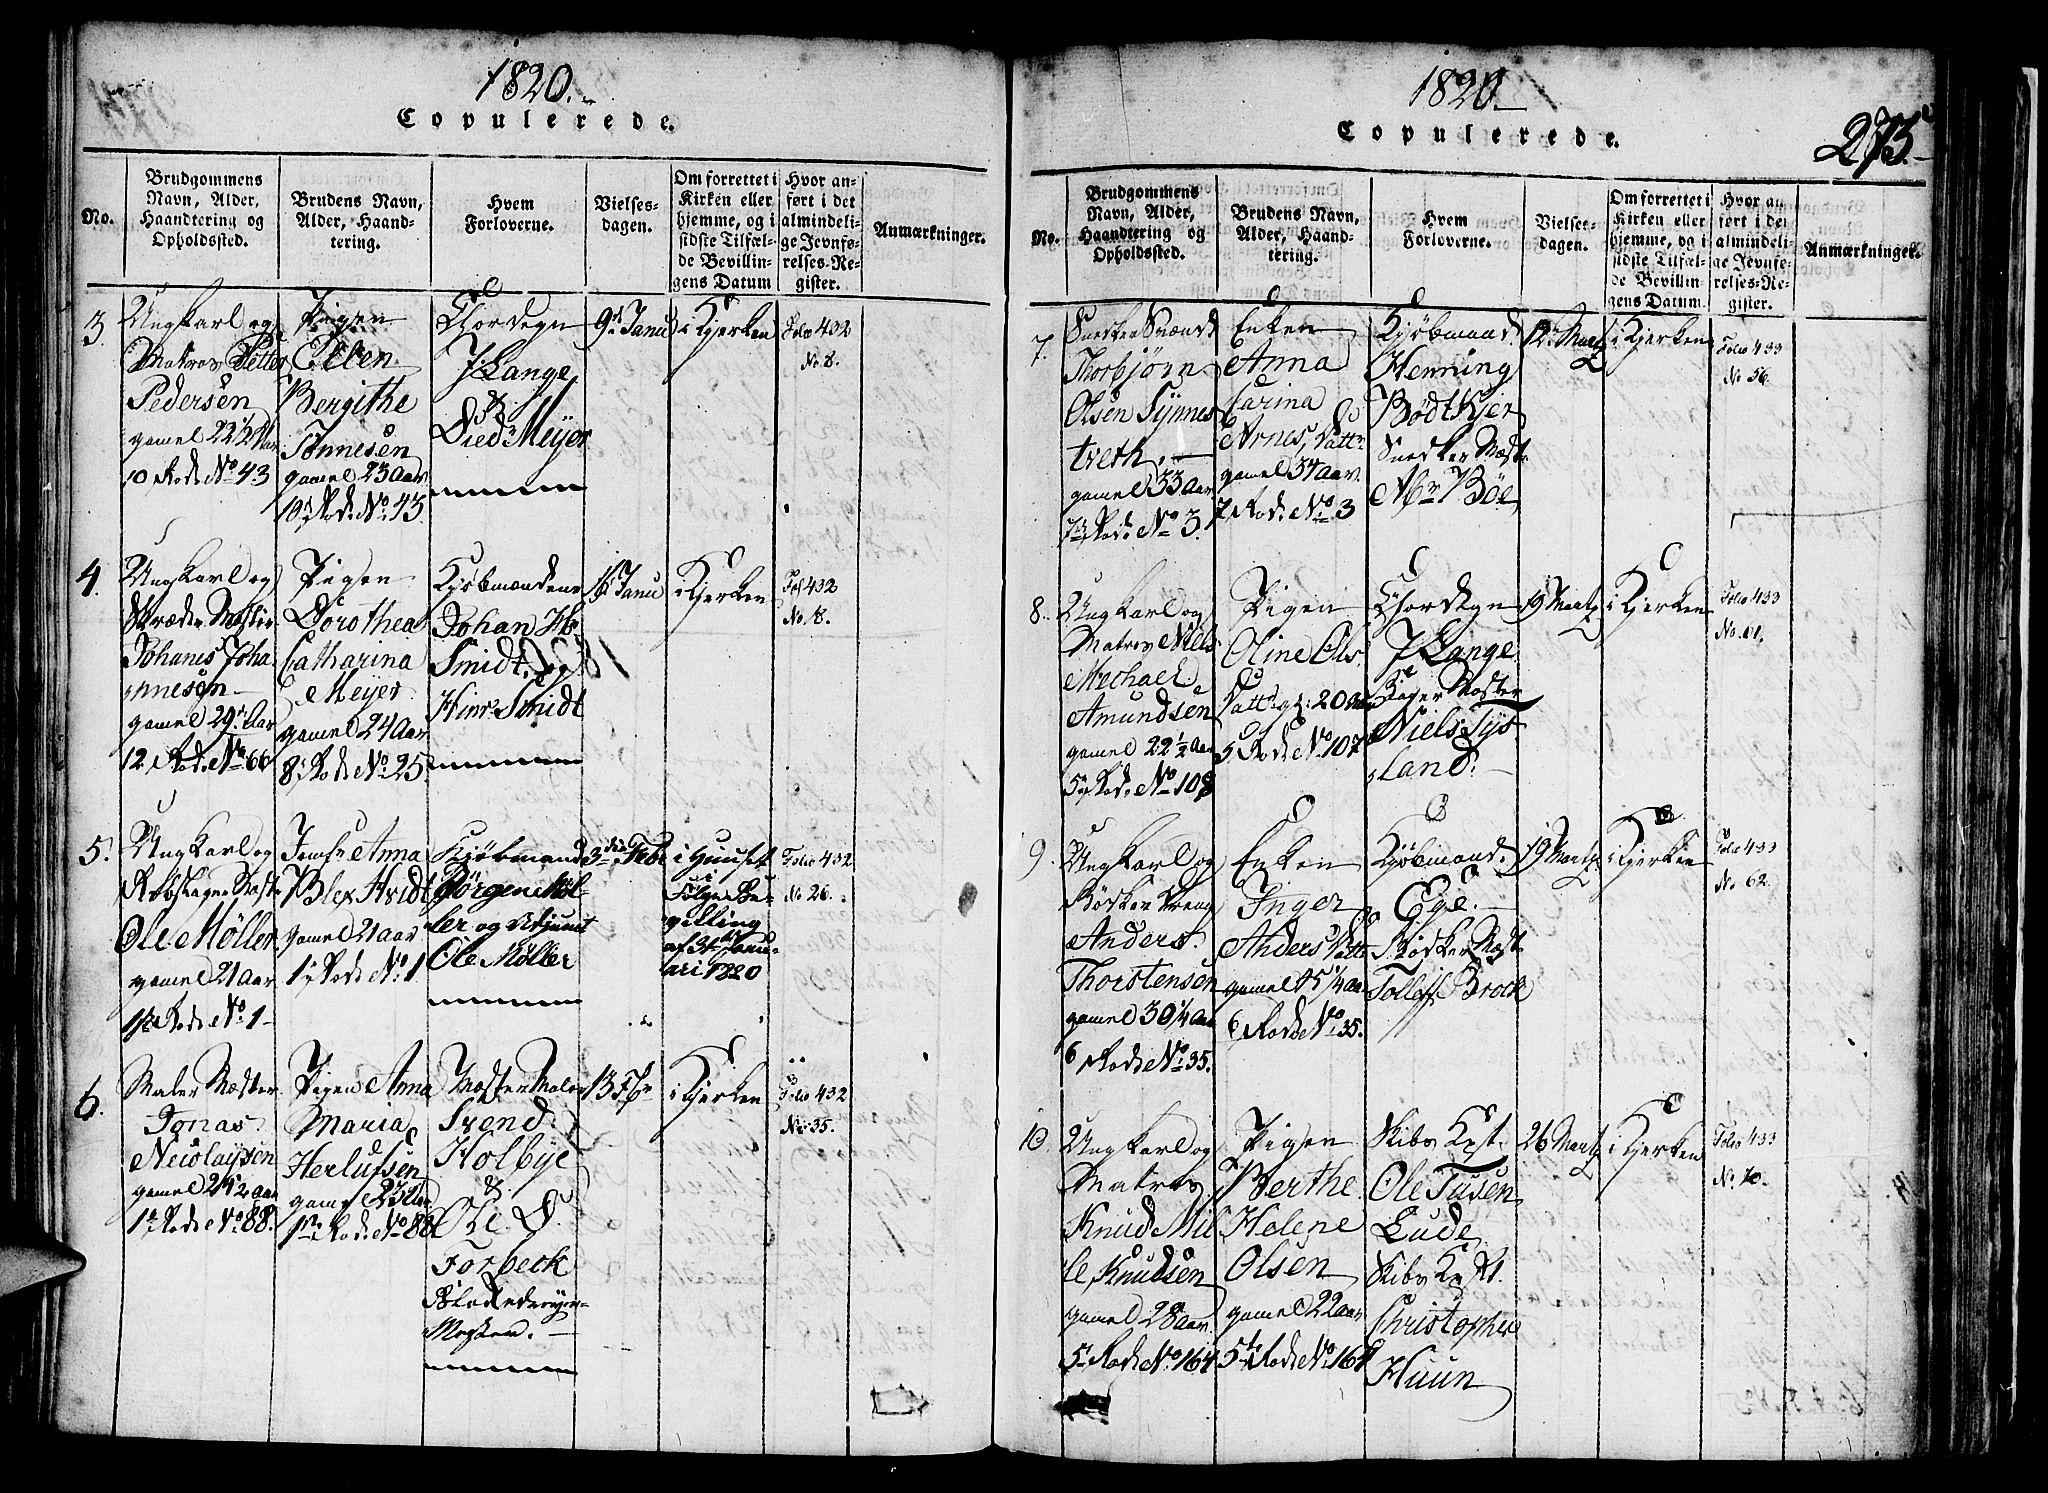 1820.
Copulerede.
No.
Brudgommens
Navn, Alder,
Haandtering og
Opholdssted.
Brudens Navn,
Alder, Haand-
tering.
Hvem
Forloverne.
Vielses-
dagen.
Om forrettet i
Kirken eller
hjemme, og i
sidste Tilfæl-
de Bevillin-
gens Datum
Hvor an-
ført i det
almindeli-
ge Jevnfø-
relses-Re-
gister.
Anmærkninger.
3.
Ungkarl og
Matros Petter
Pedersen
gamel 22 1/2 Aar
10 Rode No 43
Pigen
Elen
Bergithe
Tønnesen
gamel 23 Aar
10 Rode No 43.
Chordegn
J. Lange
&
Died Meyer
9de Janu
i Kjerken
Folio 432
No 8.
4.
Ungkarl og
Skræder Mester
Johanes Joha
nnesen
gamel 29 Aar
12 Rode No 66
Pigen
Dorothea
Catharina
Meyer
gamel 24 Aar
8 Rode No 25
Kjøbmændene
Johan Hs
Smidt og
Hinr Smidt
16 Janu
i Kjerken
Fol 432
No 18.
5.
Ungkarl og
Rebslager Mester
Ole Möller
gamel 21 aar
1ste Rode No 1
Jomfr Anna
Hvidt
gamel 21 aar
1 Rode No 1
Kjøbmand
Jörgen Möl-
ler og Adjunct
Ole Möller
3die Febr
i Huuset
i
Følge Be-
villing
af 31 Janu-
ari 1820
Folio 432
No 26.
6.
Maler Mester
Jonas
Nicolaysen
gamel 24 1/2 aar
1te Rode No 88.
Pigen Anna
Maria
Herlufsen
gamel 23 Aar
1te Rode No 88
Mester Maler
Svend
Holbye
&
Ole D.
Torbeck
Mester.
13 Febr
i Kjerken
Folio 432
No 35.
1820.
Copulerede.
275
No.
Brudgommens
Navn, Alder,
Haandtering og
Opholdssted.
Brudens Navn,
Alder, Haand-
tering.
Hvem
Forloverne.
Vielses-
dagen.
Om forrettet i
Kirken eller
hjemme, og i
sidste Tilfæl-
de Bevillin-
gens Datum.
Hvor an
ført i det
almindeli-
ge Jevnfø-
relses-Re-
gister.
Anmærkninger.
7.
Snedker Svænd
Thorbjörn
Olsen Synnes
tveth,
gamel 33 Aar
7de Rode No 3.
Enken
Anna
Carina
Arnes Datter
gamel 37 Aar
7 Rode No 3
Kjøbmand
Henning
BödtKjer
Snedker Mester
Böe
12 Martz
i Kjerken
Folio 433
No 56.
8.
Ungkarl og
Matros Niels
Michael
Amundsen
gamel 22 1/2 Aar
5te Rode No 108
Pigen
Oline Ols
Datter gl: 20 Aar
5 Rode No 107
Chordegn
J Lange
Bager Mester
Niels Tys
land.
19 Martz
i Kjerken
Folio 433
No. 61.
9.
Ungkarl og
Bødker Dreng
Anders
Thorstensen
gamel 30 1/4 Aar
6 Rode No 35.
Enken
Inger
Anders Datter
gamel 45 1/4 aar
6 Rode No 35.
Kjøbmand
Ege.
Bødker Mester
Tollef Brock
19 Martz
i Kjerken
Folio 433
No 62.
10.
Ungkarl og
Matros
Knud Mil
le Knudsen
gamel 28 aar
5 Rode No 164
Pigen
Berthe
Helene
Olsen
gamel 22 aar
5te Rode No 164
Skibs Capt.
Ole Tusen
Lude
Skibs Capt.
Christopher
Huun
26 Martz
i Kjerken
Folio 433
No. 70.